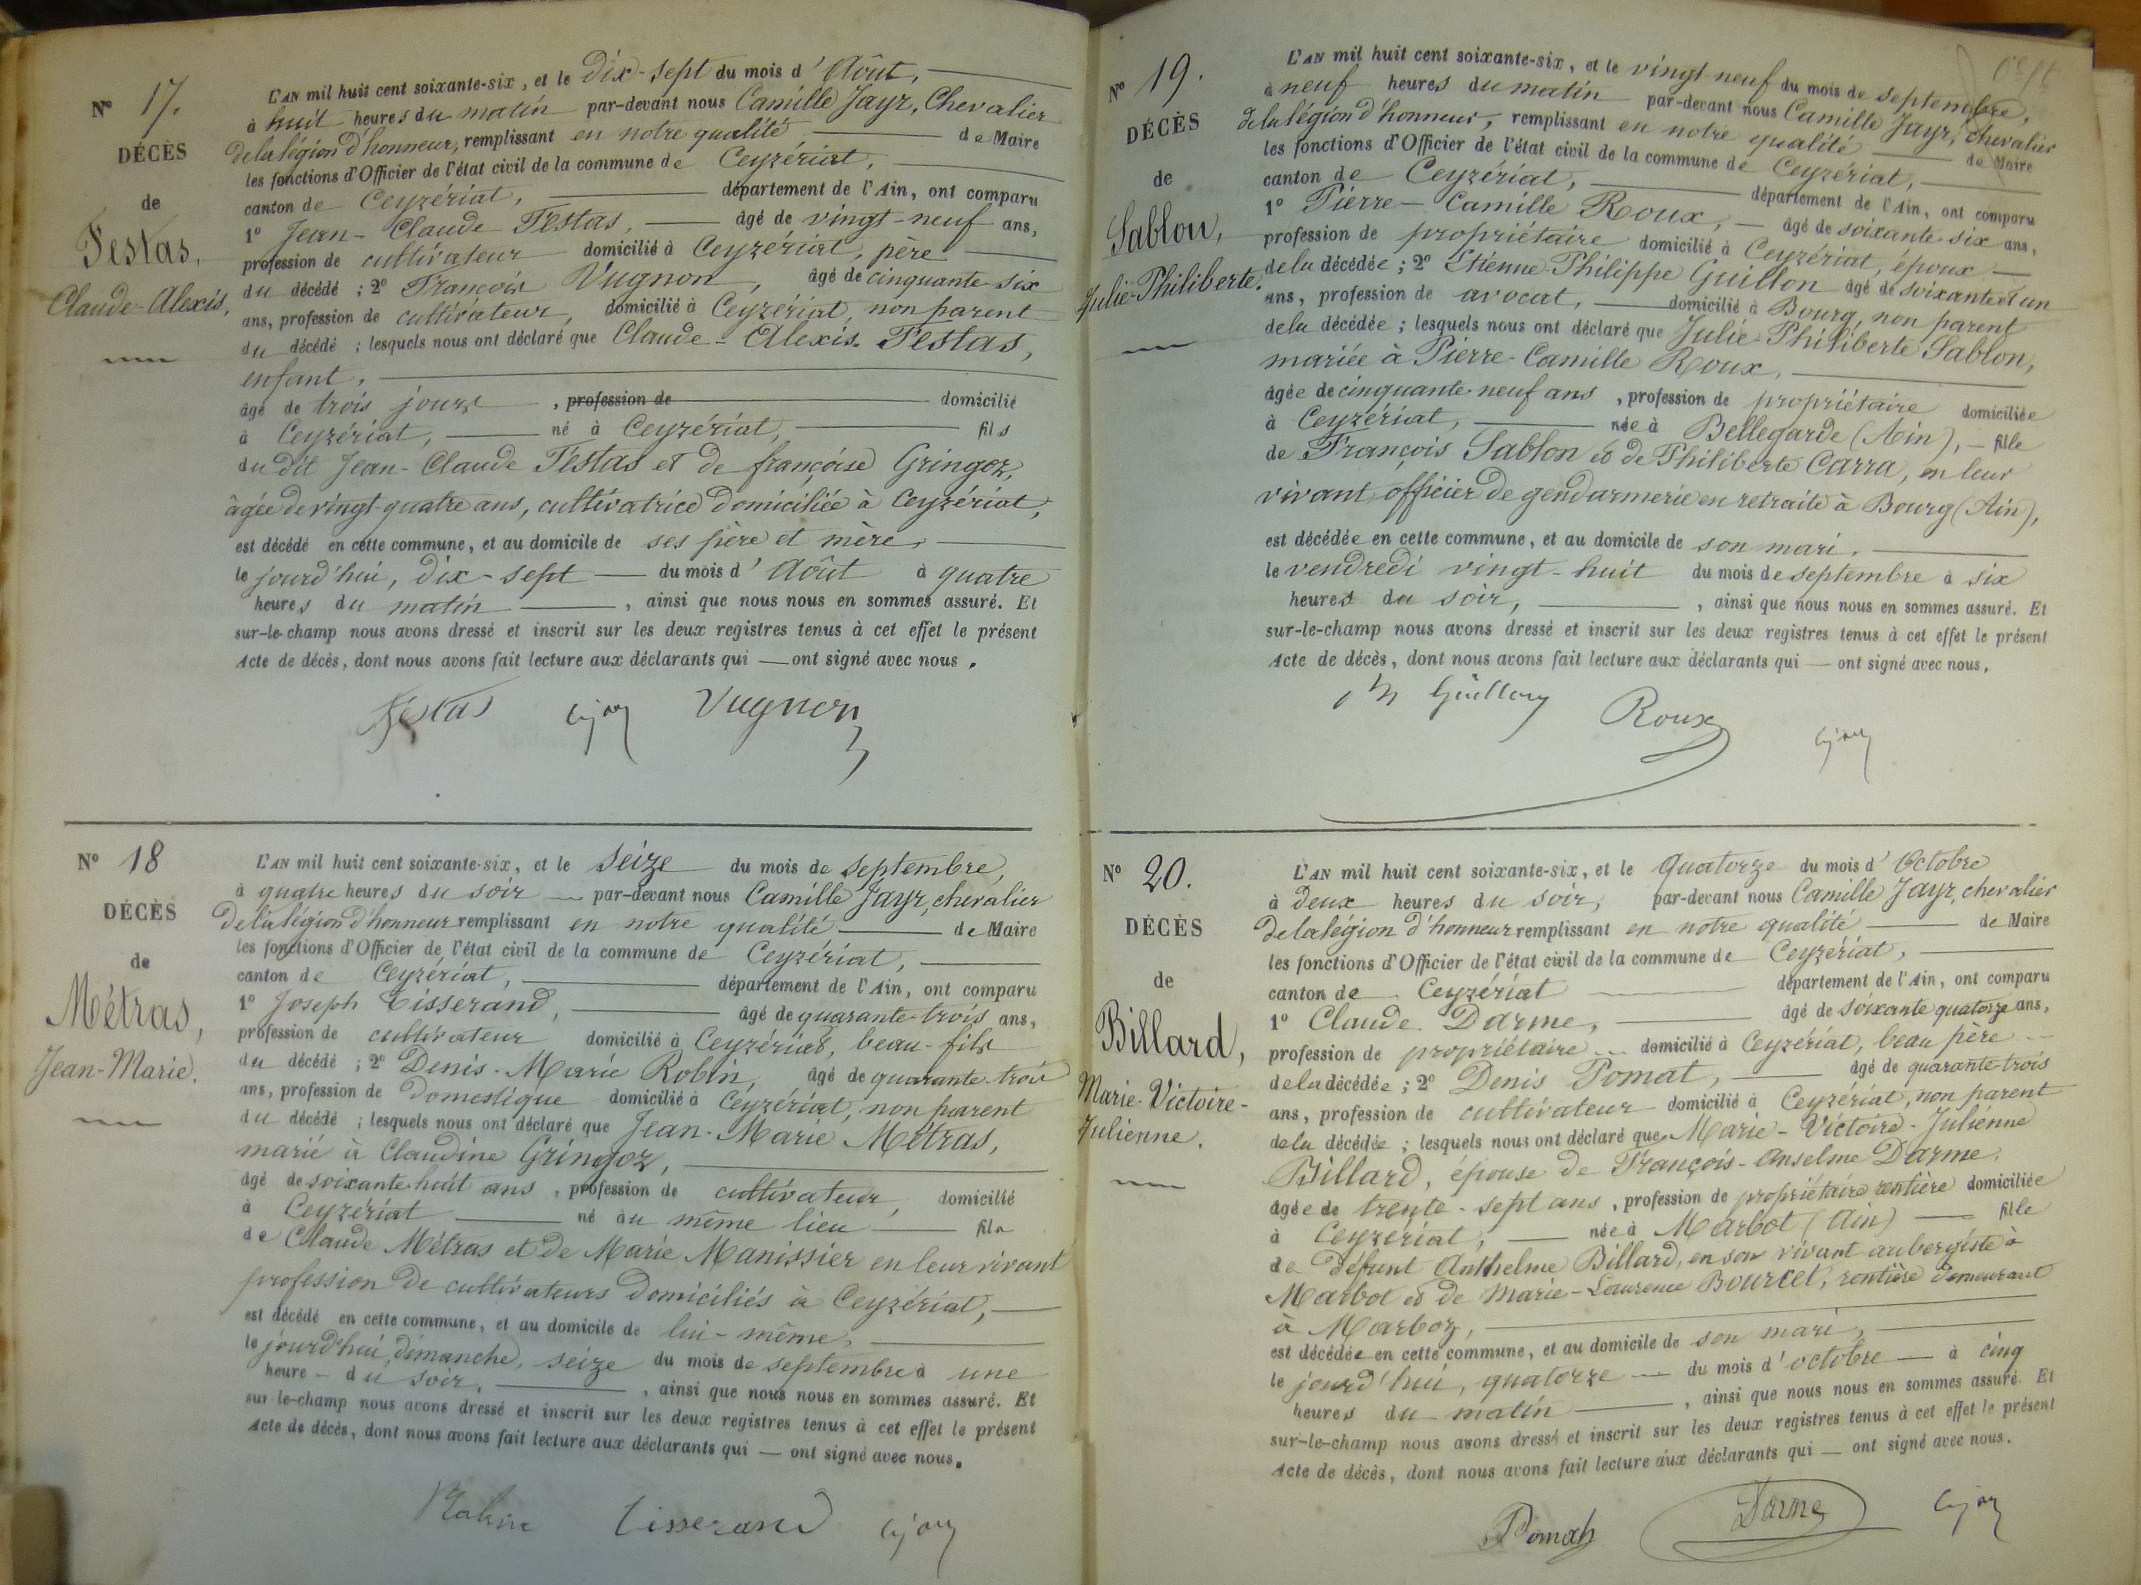 N° 17.
DÉCÈS
de
Testas,
Claude-Alexis,
L'AN mil huit cent soixante-six, et le dix-sept du mois d'Août,
à huit heures du matin par-devant nous Camille Jayr, Chevalier
de la légion d'honneur, remplissant en notre qualité de Maire
les fonctions d'Officier de l'état civil de la commune de Ceyzériat,
canton de Ceyzériat, département de l'Ain, ont comparu
1° Jean-Claude Testas, âgé de vingt-neuf ans,
profession de cultivateur domicilié à Ceyzériat, père
du décédé ; 2° François Vugnon, âgé de cinquante-six
ans, profession de cultivateur, domicilié à Ceyzériat, non parent
du décédé ; lesquels nous ont déclaré que Claude-Alexis Testas,
enfant,
âgé de trois jours, profession de domicilié
à Ceyzériat, né à Ceyzériat, fils
du dit Jean-Claude Testas et de françoise Gringoz,
âgée de vingt-quatre ans, cultivatrice domiciliée à Ceyzériat,
est décédé en cette commune, et au domicile de ses père et mère,
le jourd'hui, dix-sept du mois d'Août à quatre
heures du matin, ainsi que nous nous en sommes assuré. Et
sur-le-champ nous avons dressé et inscrit sur les deux registres tenus à cet effet le présent
Acte de décès, dont nous avons fait lecture aux déclarants qui ont signé avec nous.
Testas Vugnon
N° 18
DÉCÈS
de
Métras,
Jean-Marie.
L'AN mil huit cent soixante-six, et le seize du mois de septembre,
à quatre heures du soir par-devant nous Camille Jayr, chevalier
de la légion d'honneur remplissant en notre qualité de Maire
les fonctions d'Officier de l'état civil de la commune de Ceyzériat,
canton de Ceyzériat, département de l'Ain, ont comparu
1° Joseph Tisserand, âgé de quarante-trois ans,
profession de cultivateur domicilié à Ceyzériat, beau-fils
du décédé ; 2° Denis-Marie Robin, âgé de quarante-trois
ans, profession de domestique domicilié à Ceyzériat, non parent
du décédé ; lesquels nous ont déclaré que Jean-Marie Métras,
marié à Claudine Gringoz,
âgé de soixante-huit ans, profession de cultivateur, domicilié
à Ceyzériat né au même lieu fils
de Claude Métras et de Marie Manissier en leur vivant
profession de cultivateurs domiciliés à Ceyzériat,
est décédé en cette commune, et au domicile de lui-même,
le jourd'hui, dimanche, seize du mois de septembre à une
heure du soir, ainsi que nous nous en sommes assuré. Et
sur-le-champ nous avons dressé et inscrit sur les deux registres tenus à cet effet le présent
Acte de décès, dont nous avons fait lecture aux déclarants qui ont signé avec nous.
Robin Tisserand
N° 19.
DÉCÈS
de
Sablon,
Julie-Philiberte.
L'AN mil huit cent soixante-six, et le vingt-neuf du mois de septembre,
à neuf heures du matin par-devant nous Camille Jayr, chevalier
de la légion d'honneur, remplissant en notre qualité de Maire
les fonctions d'Officier de l'état civil de la commune de Ceyzériat,
canton de Ceyzériat, département de l'Ain, ont comparu
1° Pierre-Camille Roux, âgé de soixante-six ans,
profession de propriétaire domicilié à Ceyzériat, époux
de la décédée ; 2° Etienne-Philippe Guillon âgé de soixante et un
ans, profession de avocat, domicilié à Bourg, non parent
de la décédée ; lesquels nous ont déclaré que Julie-Philiberte Sablon,
mariée à Pierre-Camille Roux,
âgée de cinquante-neuf ans, profession de propriétaire domiciliée
à Ceyzériat, née à Bellegarde (Ain), fille
de François Sablon et de Philiberte Carra, en leur
vivant officier de gendarmerie en retraite à Bourg (Ain),
est décédée en cette commune, et au domicile de son mari.
le vendredi vingt-huit du mois de septembre à six
heures du soir, ainsi que nous nous en sommes assuré. Et
sur-le-champ nous avons dressé et inscrit sur les deux registres tenus à cet effet le présent
Acte de décès, dont nous avons fait lecture aux déclarants qui ont signé avec nous.
Guillon Roux
N° 20.
DÉCÈS
de
Billard,
Marie-Victoire-
Julienne.
L'AN mil huit cent soixante-six, et le quatorze du mois d'Octobre
à deux heures du soir, par-devant nous Camille Jayr, chevalier
de la légion d'honneur remplissant en notre qualité de Maire
les fonctions d'Officier de l'état civil de la commune de Ceyzériat,
canton de Ceyzériat département de l'Ain, ont comparu
1° Claude Darme, âgé de soixante quatorze ans,
profession de propriétaire domicilié à Ceyzériat, beau père
de la décédée ; 2° Denis Pomat, âgé de quarante-trois
ans, profession de cultivateur domicilié à Ceyzériat, non parent
de la décédée ; lesquels nous ont déclaré que Marie-Victoire-Julienne
Billard, épouse de François-Anselme Darme,
âgée de trente-sept ans, profession de propriétaire rentière domiciliée
à Ceyzériat, née à Marbot (Ain) fille
de défunt Anthelme Billard, en son vivant aubergiste à
Marbot et de Marie-Laurence Bourcet, rentière demeurant
à Marboz,
est décédée en cette commune, et au domicile de son mari,
le jourd'hui, quatorze du mois d'octobre à cinq
heures du matin, ainsi que nous nous en sommes assuré. Et
sur-le-champ nous avons dressé et inscrit sur les deux registres tenus à cet effet le présent
Acte de décès, dont nous avons fait lecture aux déclarants qui ont signé avec nous.
Pomat Darme